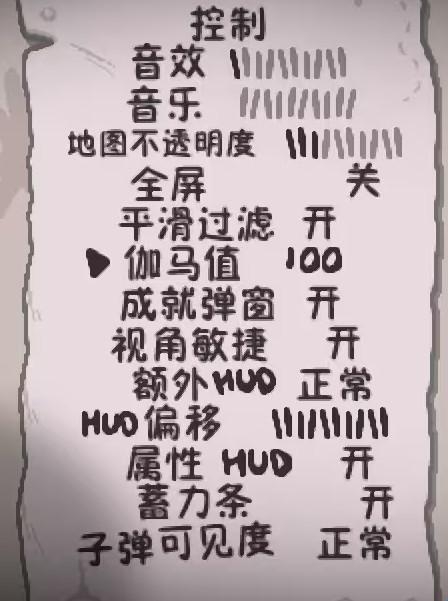 控制
音效
音乐
地图不透明度
全屏 关
平滑过滤 开
伽马值 100
成就弹窗 开
视角敏捷 开
额外HUD 正常
HUD偏移
属性 HUD 开
蓄力条 开
子弹可见度 正常